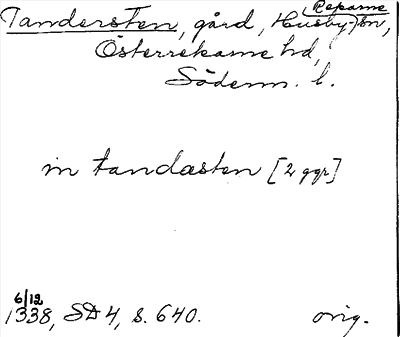 Tandersten, gård, Husby-(Rekarne)sn,
Österrekarne hd,
Söderm. l.
in tandasten [2 ggr]
6/12
1338, SD 4, s. 640. orig.